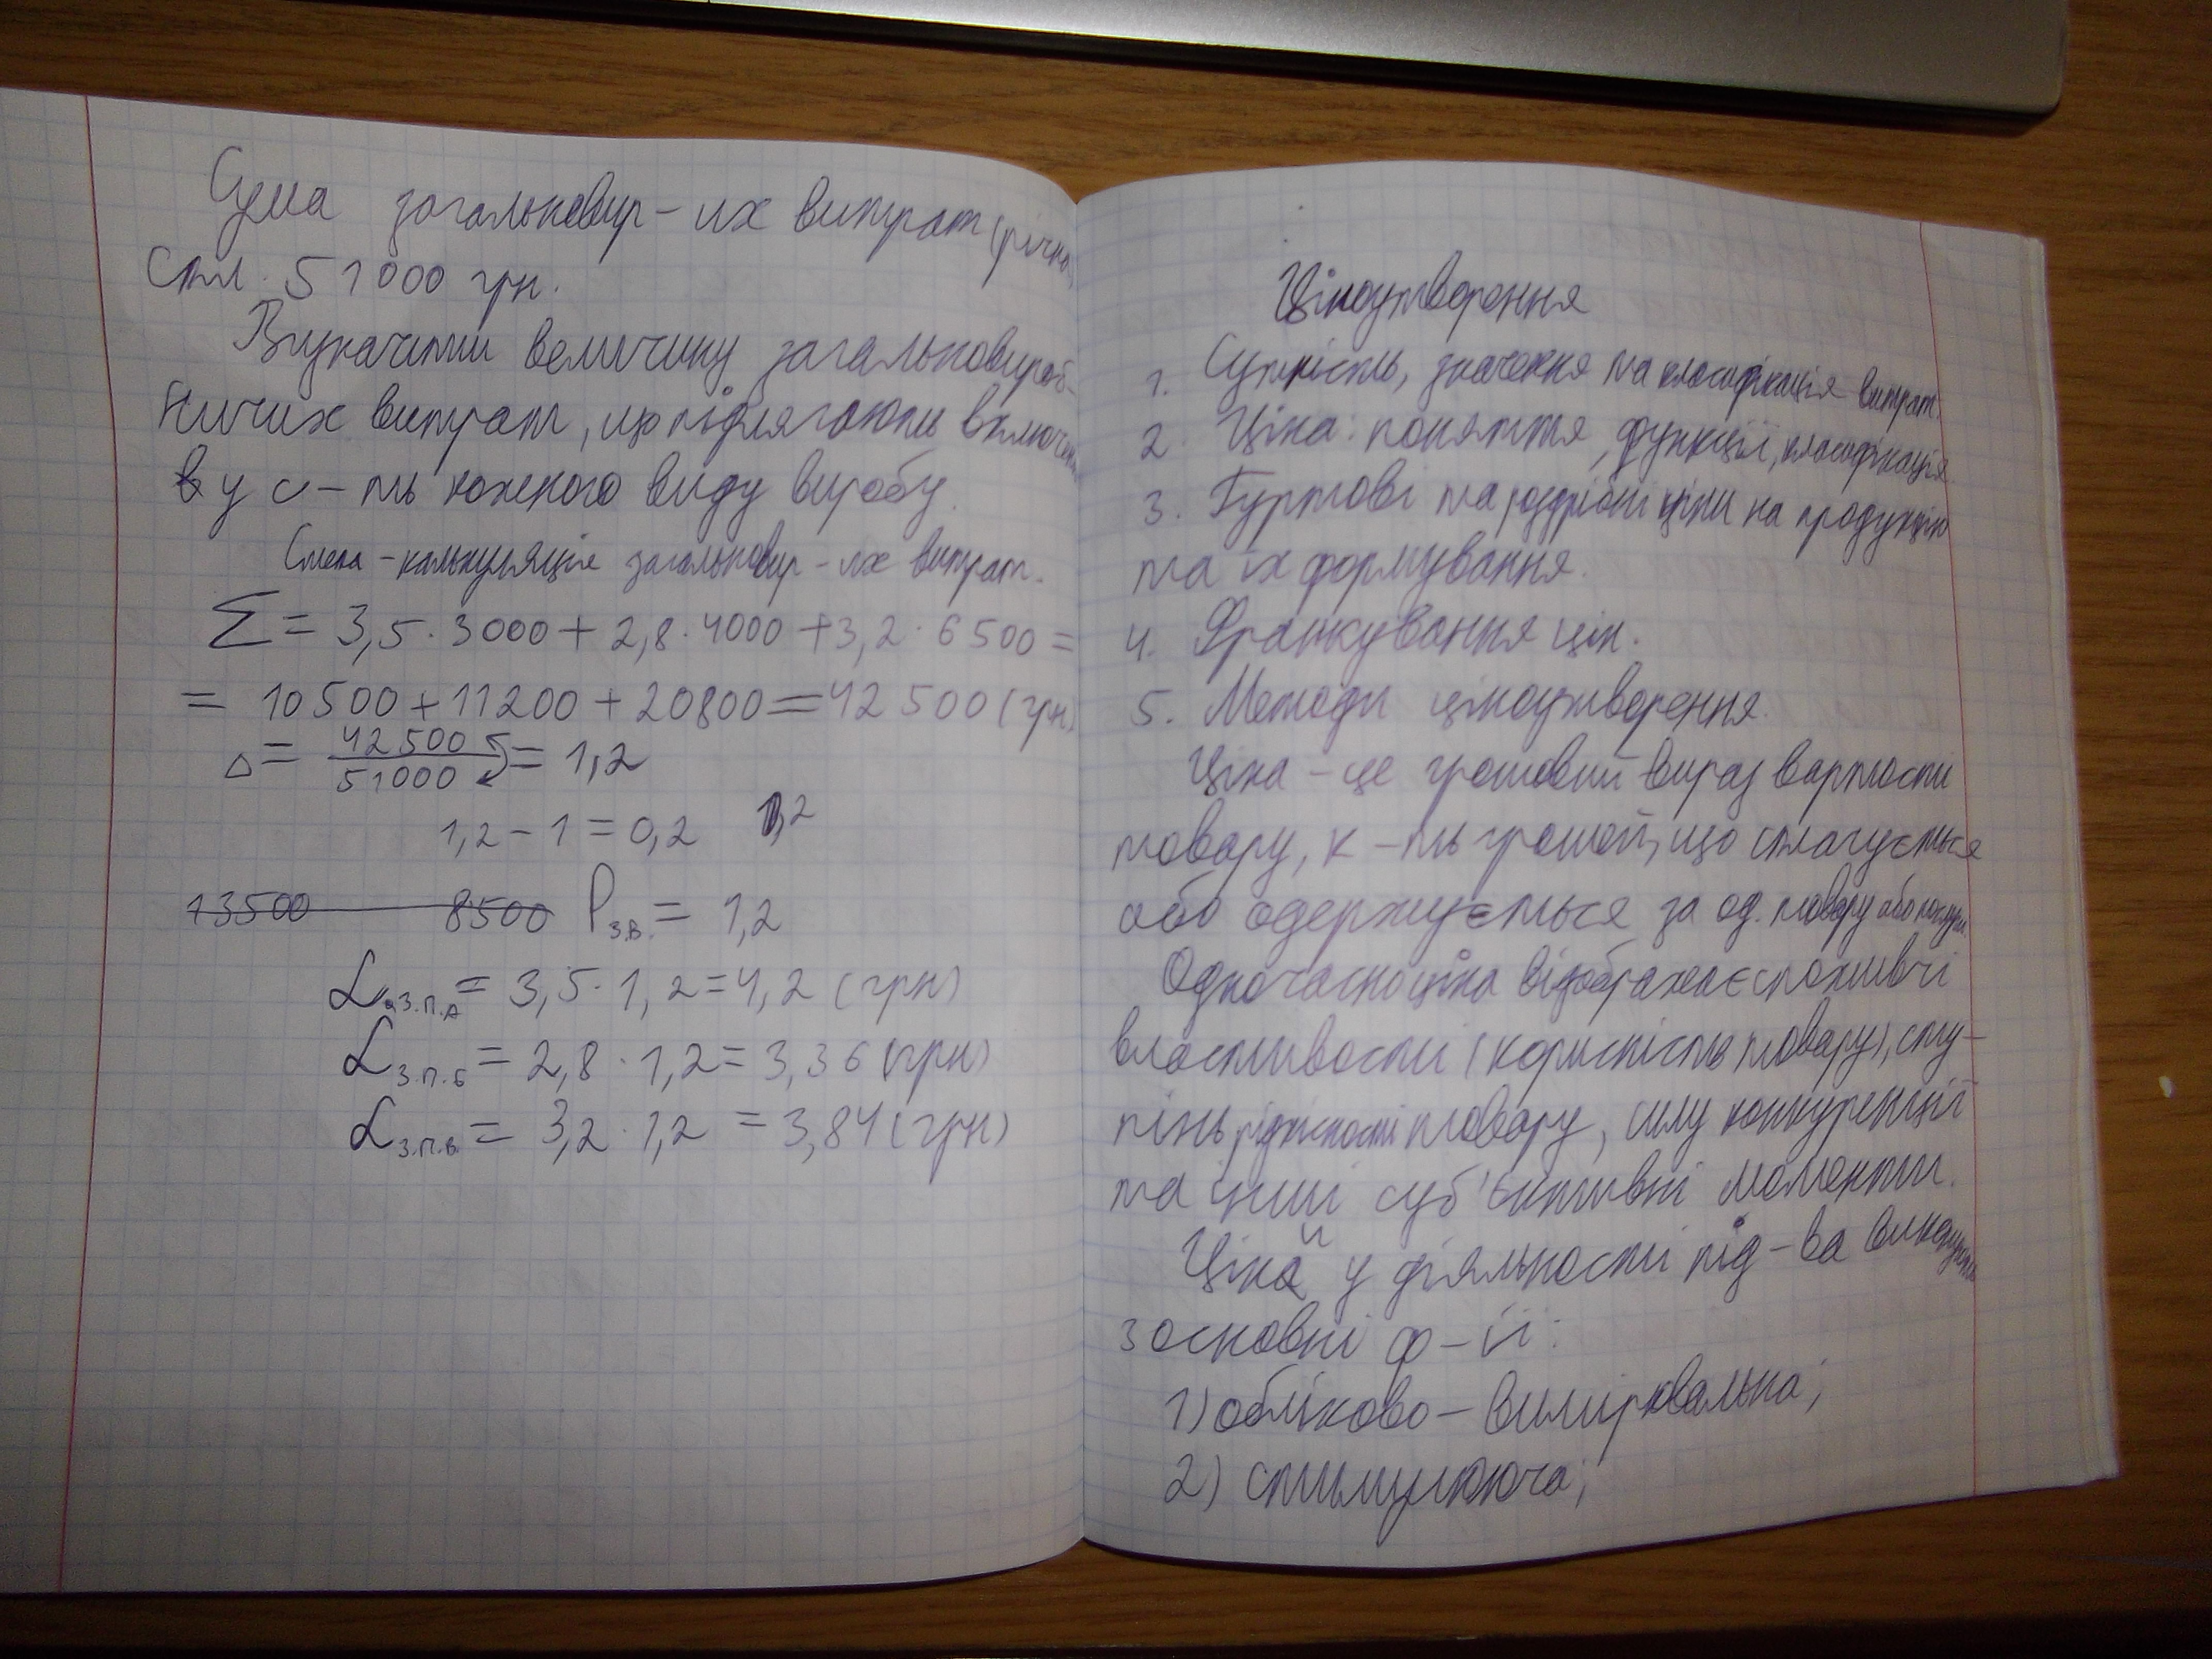 Сума загальновир-их витрат (річна)
стл. 51000 грн.
Визначити величину загальновироб-
ничих витрат, що підлягають включен
в у с-ть кожного виду виробу.
Смета-калькуляція загальновир-их витрат.
Σ = 3,5·3000 + 2,8·4000 + 3,2·6500 =
= 10500 + 11200 + 20800 = 42500 (грн)
Δ = 42500 / 51000 = 1,2
1,2 - 1 = 0,2 1,2
13500 8500 Pз.в. = 1,2
Lз.п.А = 3,5·1,2 = 4,2 (грн)
Lз.п.Б = 2,8·1,2 = 3,36 (грн)
Lз.п.В = 3,2·1,2 = 3,84 (грн)
Ціноутворення
1. Сутність, значення та класифікація витрат.
2. Ціна: поняття, функції, класифікація
3. Гуртові та роздрібні ціни на продукцію
та їх формування.
4. Франкування цін.
5. Методи ціноутворення.
Ціна - це грошовий вираз вартости
товару, к-ть грошей, що сплачується
або одержується за од. товару або послуги
Одночасно ціна відображає споживчі
властивости (корисність товару), сту-
пінь рідкісности товару, силу конкуренції
та інші суб'єктивні моменти.
Ціни у діяльности під-ва виконують
3 основні ф-ії:
1) обліково-вимірювальна;
2) стимулююча;